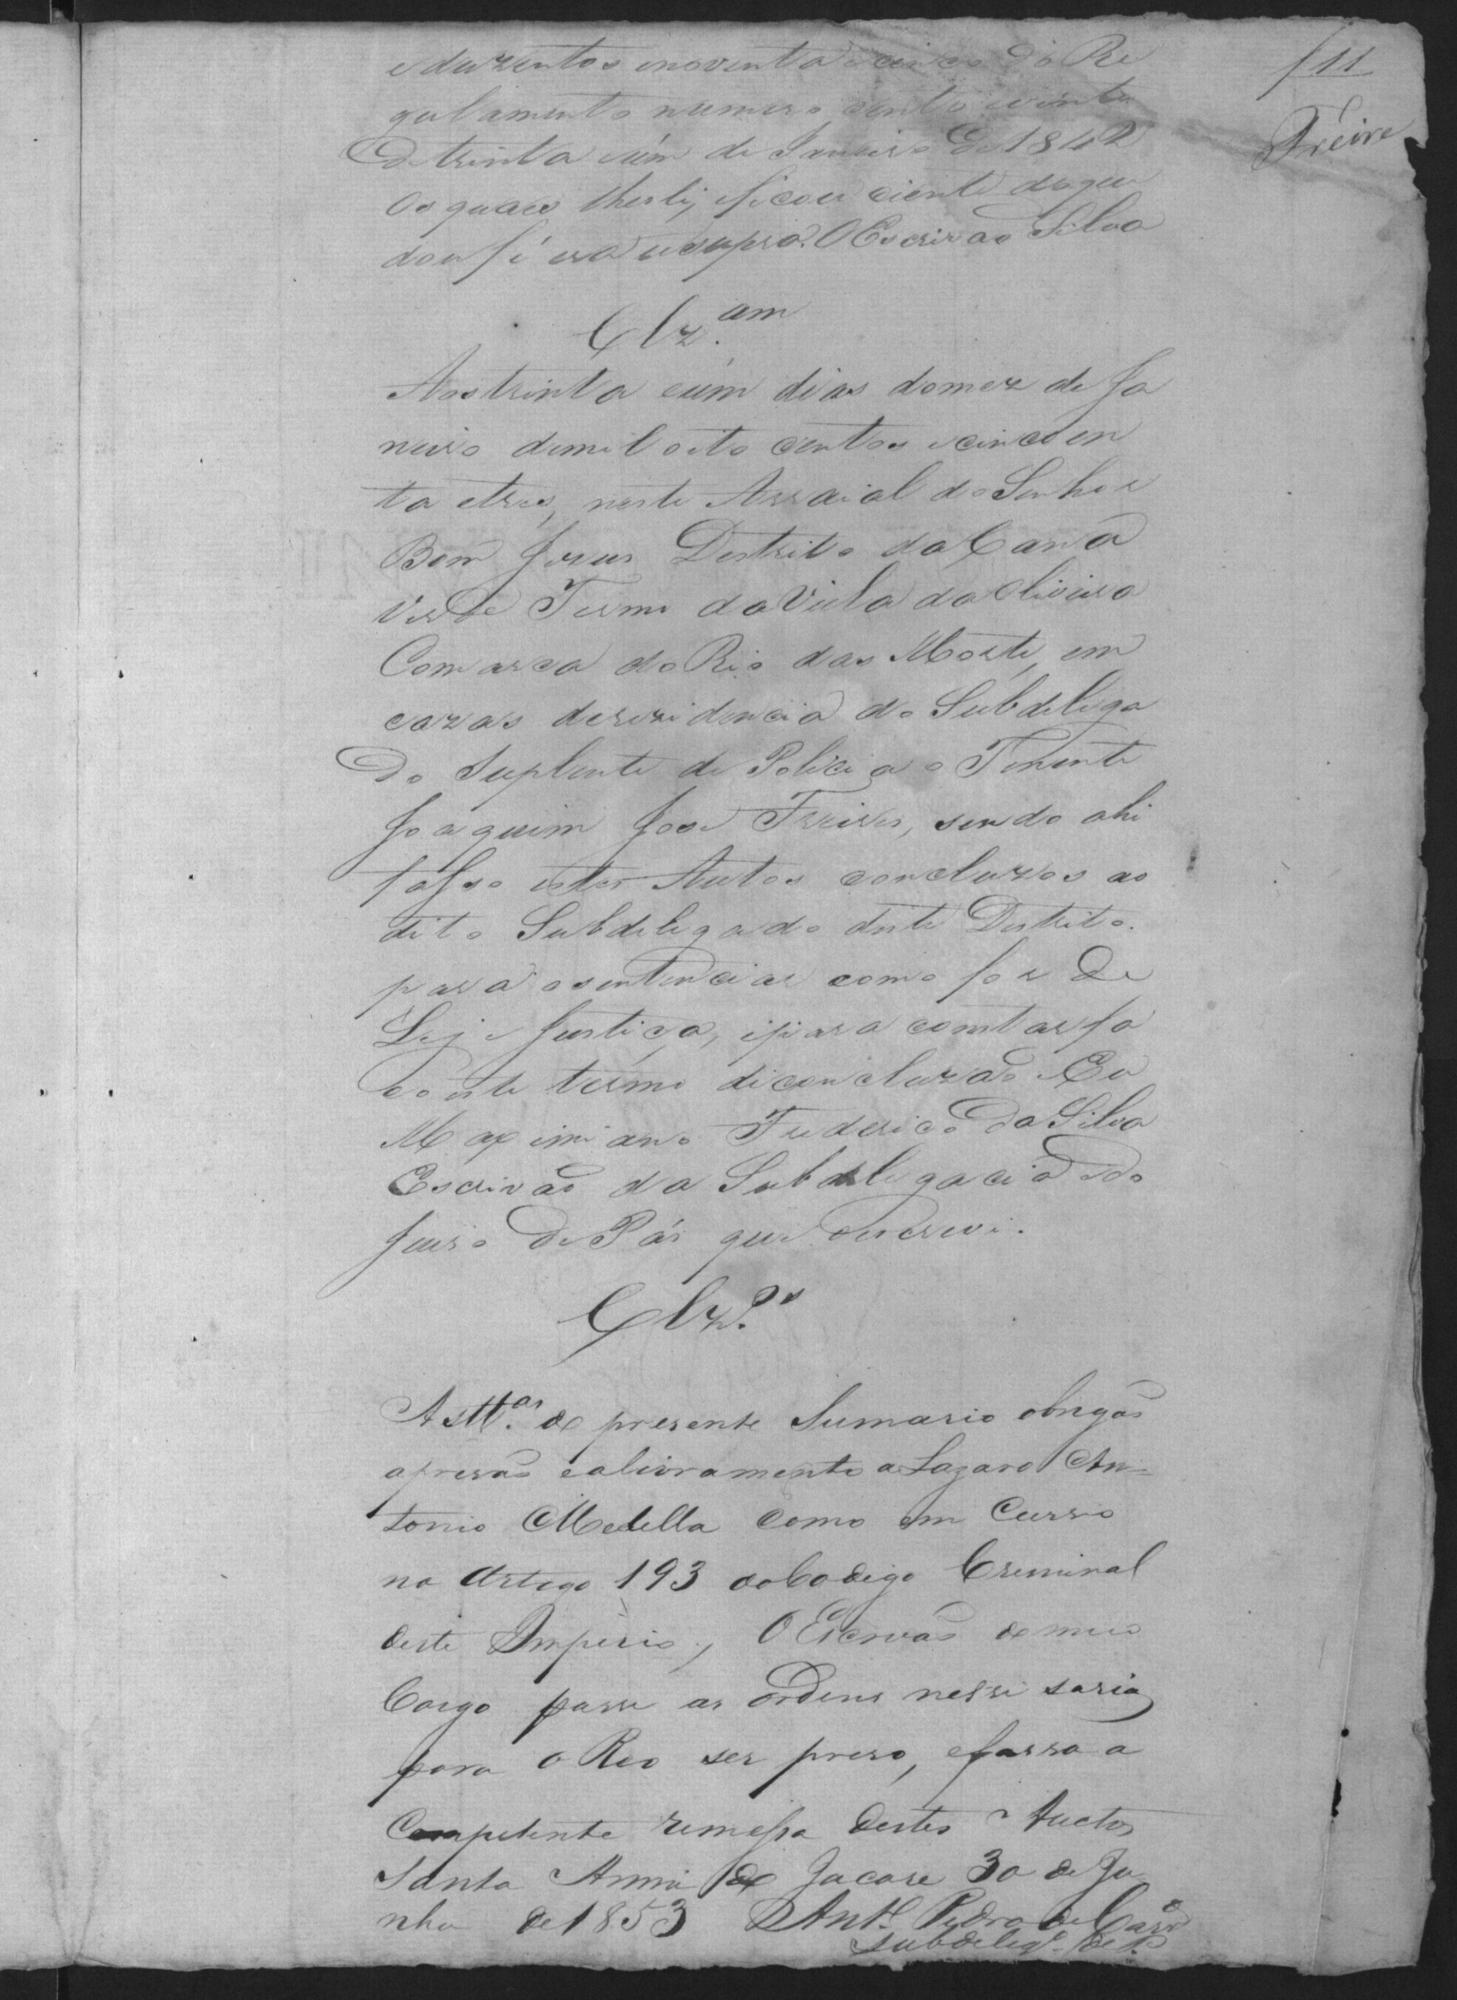 11
Freire
e duzentos enoventa e cinco do Re
gulamento numero cento e vinte
de trinta eúm de Janeiro de 1842
Os quaes lhesly, eficou ciente doque
dou fé era usupra. O Escrivaõ Silva
Clz.am
Aos trinta eúm dias domez de Ja
neiro demil oito centos e cincoen
ta etres, neste Arraial do Senhor
Bom Jezus Destrito da Canna
Verde Termo da Villa da Oliveira
Comarca do Rio das Morte, em
cazas derezidencia do Subdelega
do Suplente de Policia o Tenente
Joaquim Jose Freire, sendo ahi
fasso estes Autos concluzos ao
dito Subdelegado deste Destrito.
para osentenciar como for de
Ley e Justiça, epara constar fa
ço este termo deconcluzaõ Eu
Maximiano Frederico da Silva
Escrivaõ da Subdelegacia edo
Juizo de Páz que oescrevi.
Clz.os
As tt.as do presente Sumario obrigaõ
aprezaõ e alivramento a Lazaro An=
tonio Metella como em Curso
no Artigo 193 do Codigo Criminal
deste Imperio, O Escrivaõ de meu
Cargo passe as ordens nessesarias
para o Reo ser prezo, e fassa a
Competente remessa destes Auctos
Santa Anna do Jacare 30 de Ju
nho de 1853 Ant.o Pedro de
Subdeleg.o de P.